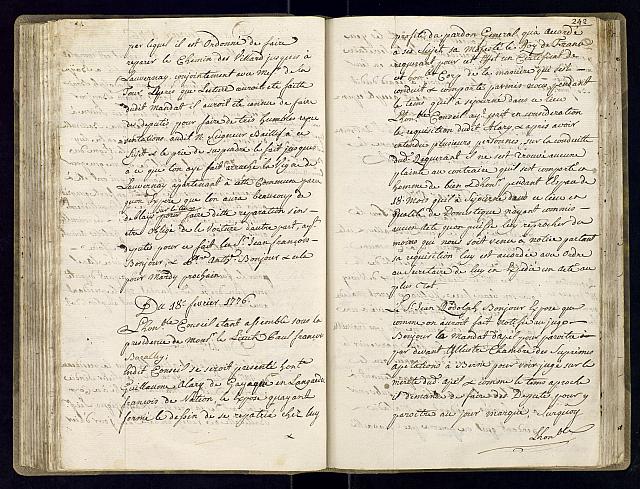 par lequel il est Ordonné de faire
reparer le Chemin des Villard jusques à
Lauvernay conjointement avec
Tour, Apres que Lecture auroit été faite
dudit Mandat il auroit été convenu de faire
de députés pour faire de très humbles repre
sentations audit Seigneur Baillif à ce
Sujet & le prie de suspendre le fait jusques
à ce que l'on aye fait arraché la Vigne de
Lauvernay appartenant à cette Commune
que l'on aura beaucoup de
pour faire ditte reparation sans
etre Obligé de la Voiturer d'autre part,
deputés pour ce fait les Srs Jean françois
Bonjour, & Bonjour
pour Mardy prochain
Du 18e fevrier 1776
L'honble Conseil étant assemblé sous la
presidence de Monsr. le Lieut. Paul françois
Baraley;
audit Conseil se seroit presenté honte
Guillaume Alary de en Languedoc
françois de Nation, le expose qu'ayant
formé le dessein de se repatrier chez luy
242
profité du pardon General qu'a accordé
à ses Sujet sa Majesté le Roy de France
requerant pour cet effet un Certificat de
cet honble Corp de la manière qu'il s'est
conduit & comporté parmis nous pendant
le tems qu'il a séjourné dans ce lieu
L'honble Conseil ayt. pris en consideration
la requisition dudit Alary & apres avoir
entendu plusieurs personnes, sur la conduitte
dud. Requerant il ne s'est trouvé aucune
plainte au contraire qu'il s'est comporté en
homme de bien & d'honr. pendant l'espace de
18. Mois qu'il a séjourné dans ce lieu en
qualité de Domestique n'ayant commis
aucun acte qu'on puisse luy reprocher du
moins qui nous soit venu à notice partant
sa requisition luy est accordée avec Ordre
au Secretaire de luy en acte au
plus tot
Le Sr. Jean Rodolph Bonjour Expose que
comme on auroit fait Notifié au juge
Bonjour la Mandat d'apel pour paroitre
par devant Illustre Chambre des Suprêmes
apelations à Berne pour voir juge sur le
merite dud. apel & comme le tems aproche
il demande de faire des Deputé pour y
paroître au jour marqué, Surquoy
L'honble